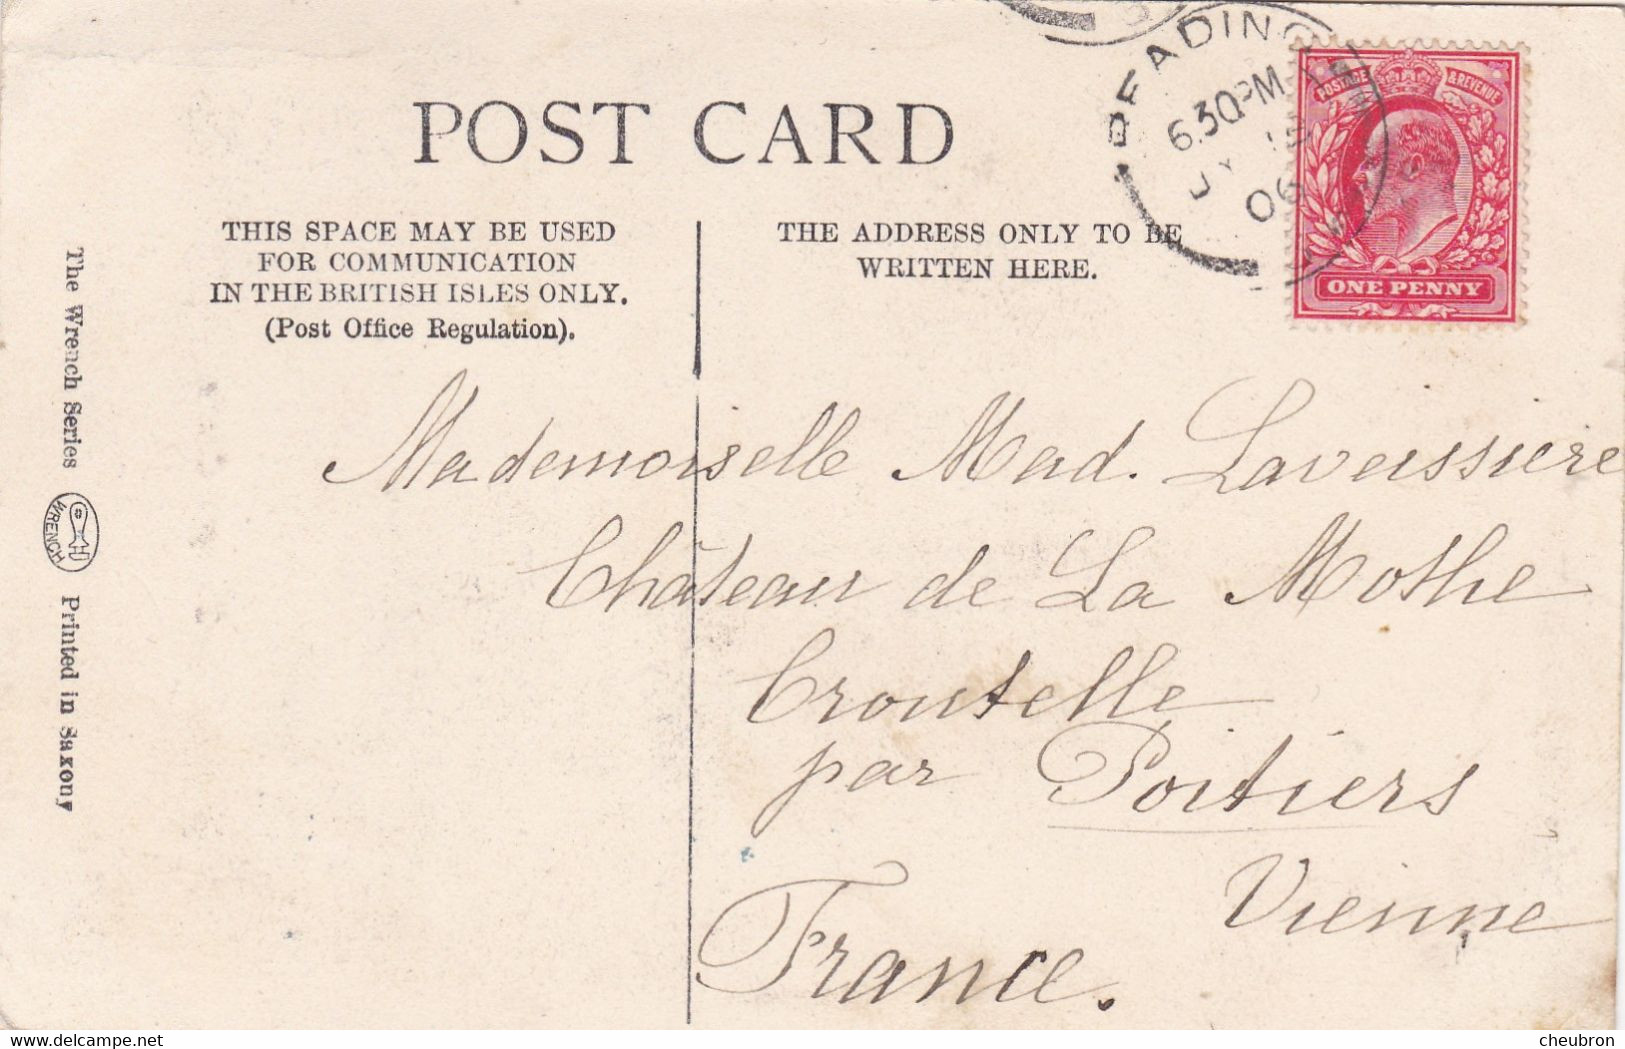 POST CARD
THIS SPACE MAY BE USED
FOR COMMUNICATION
IN THE BRITISH ISLES ONLY.
(Post Office Regulation).
THE ADDRESS ONLY TO BE
WRITTEN HERE.
READING
6.30PM
JY 
06
POSTAGE & REVENUE
ONE PENNY
The Wrench Series
WRENCH
Printed in Saxony
Mademoiselle Mad. Laveissiere
Château de La Mothe
Croutelle
par Poitiers
Vienne
France.
cheubron